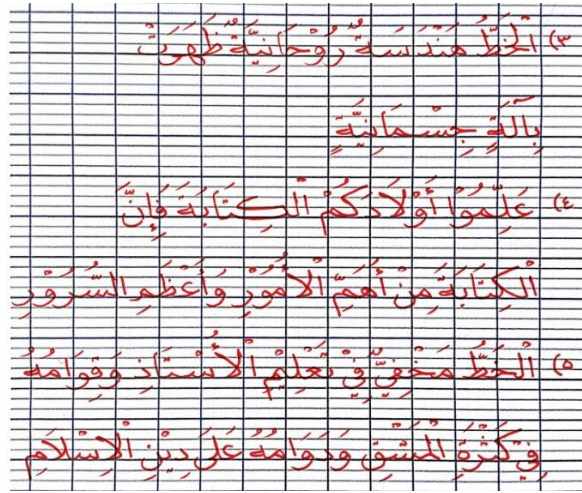 ٣) اَلْخَطُّ هَنْدَسَةٌ رُوْحَانِيَّةٌ ظَهَرَتْ
بِآلَةٍ جِسْمَانِيَّةٍ
٤) عَلِّمُوْا أَوْلَادَكُمْ الْكِتَابَةَ فَإِنَّ
الْكِتَابَةَ مِنْ أَهَمِّ الْأُمُوْرِ وَأَعْظَمِ السُّرُوْرِ
٥) اَلْخَطُّ مَخْفِيٌّ فِيْ تَعْلِيْمِ الْأُسْتَاذِ وَقِوَامُهُ
فِيْ كَثْرَةِ الْمَشْقِ وَدَوَامُهُ عَلَى دِيْنِ الْإِسْلَامِ